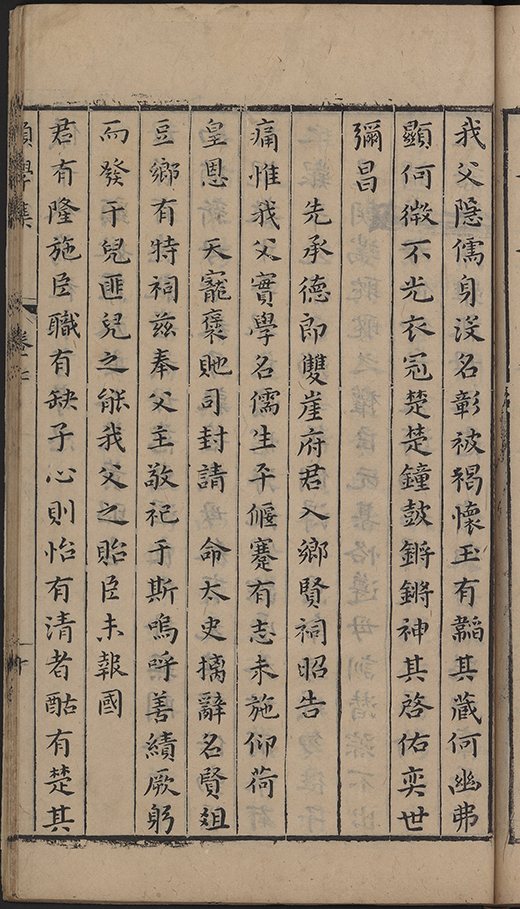 我父隱儒身沒名彰被褐懷玉有韞其藏何幽弗
顯何微不光衣冠楚楚鐘鼓鏘鏘神其啓佑奕世
彌昌
先承德郎雙崖府君入鄉賢祠昭告
痛惟我父實學名儒生平偃蹇有志未施仰荷
皇恩 天寵褒貤司封請 命太史摛辭名賢俎
豆鄉有特祠茲奉父主敬祀于斯嗚呼善績厥躬
而發于兒匪兒之能我父之貽臣未報國
君有隆施臣職有缺子心則怡有清者酤有楚其
學集 卷之七